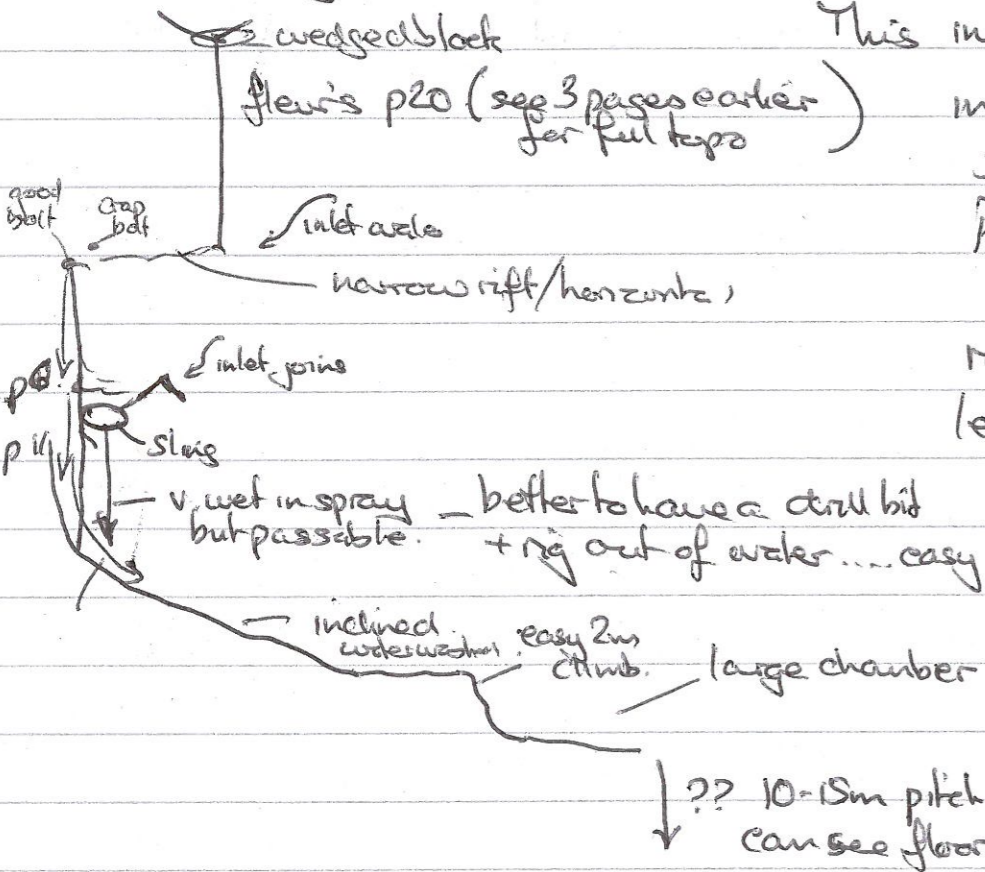 wedged block
This in
fleur's p20 (see 3 pages earlier
for full topo)
in
good
bolt
crap
bolt
inlet
narrow rift/horizontal
inlet joins
p
p 11
sling
v. wet in spray
but passable.
– better to have a drill bit
+ rig out of water.... easy
le
inclined
easy 2m
climb.
large chamber
?? 10-15m pitch
can see floor